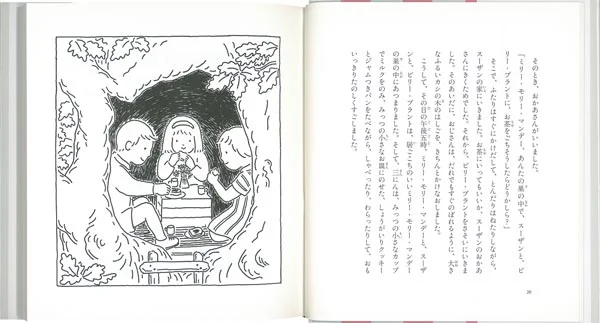 そのとき、おかあさんがいいました。
「ミリー・モリー・マンデー、あんたの巣の中で、スーザンと、ビ
リー・ブラントに、お茶をごちそうしたらどうかしら？」
そこで、ふたりはすぐにかけだして、とんだりはねたりしながら、
スーザンの家にいきました。お茶にいってもいいか、スーザンのおかあ
さんにきくためでした。それから、ビリー・ブラントをさそいにいきま
した。そのあいだに、おじさんは、だれでもすぐのぼれるように、大き
なふるいカシの木のはしごを、きちんとかけなおしました。
こうして、その日の午後五時、ミリー・モリー・マンデーと、スーザ
ンと、ビリー・ブラントは、居ごこちのいいミリー・モリー・マンデー
の巣の中にあつまりました。そして、三にんは、みっつの小さなカップ
でミルクをのみ、みっつの小さなお皿にのせた、しょうがいりクッキー
とジャムつきパンをたべながら、しゃべったり、わらったりして、おも
いっきりたのしくすごしました。
20